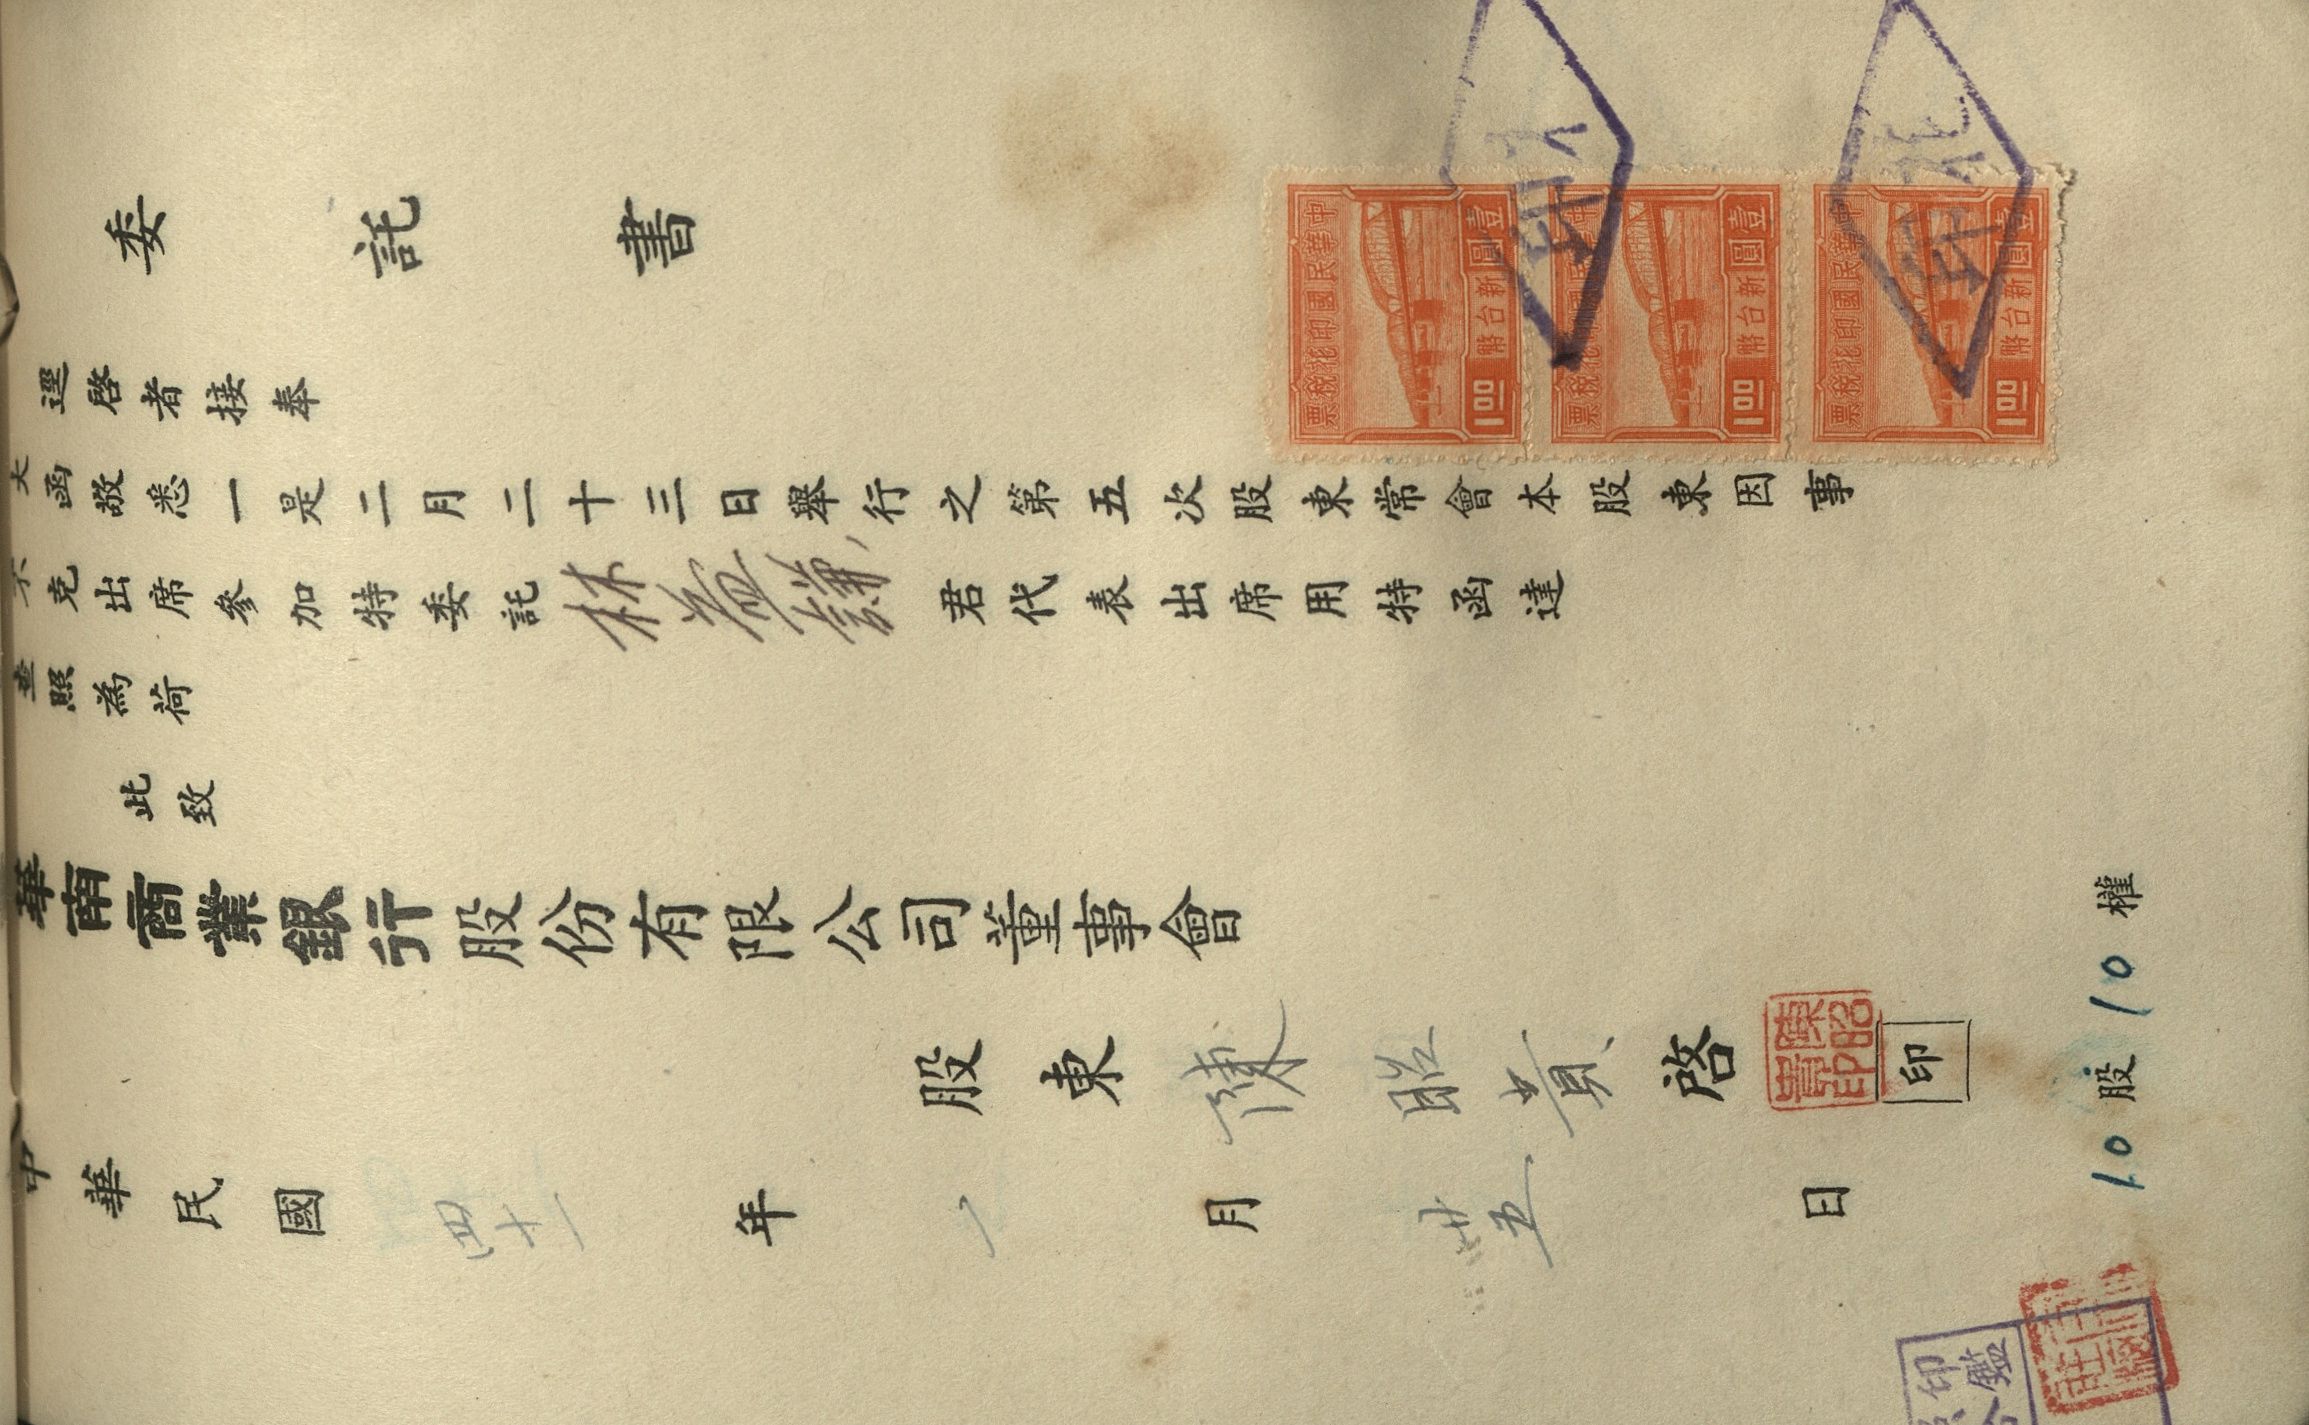 委託書
逕啓者接奉
大函敬悉一是二月二十三日舉行之第五次股東常會本股東因事
不克出席參加特委託林 君代表出席用特函達
查照為荷
此致
華南商業銀行股份有限公司董事會
股東陳昭貴啓
印
中華民國四十一年二月廿五日
10股10權
中華民國印花稅票
壹圓新台幣
1.00
中華民國印花稅票
壹圓新台幣
1.00
中華民國印花稅票
壹圓新台幣
1.00
印鑑